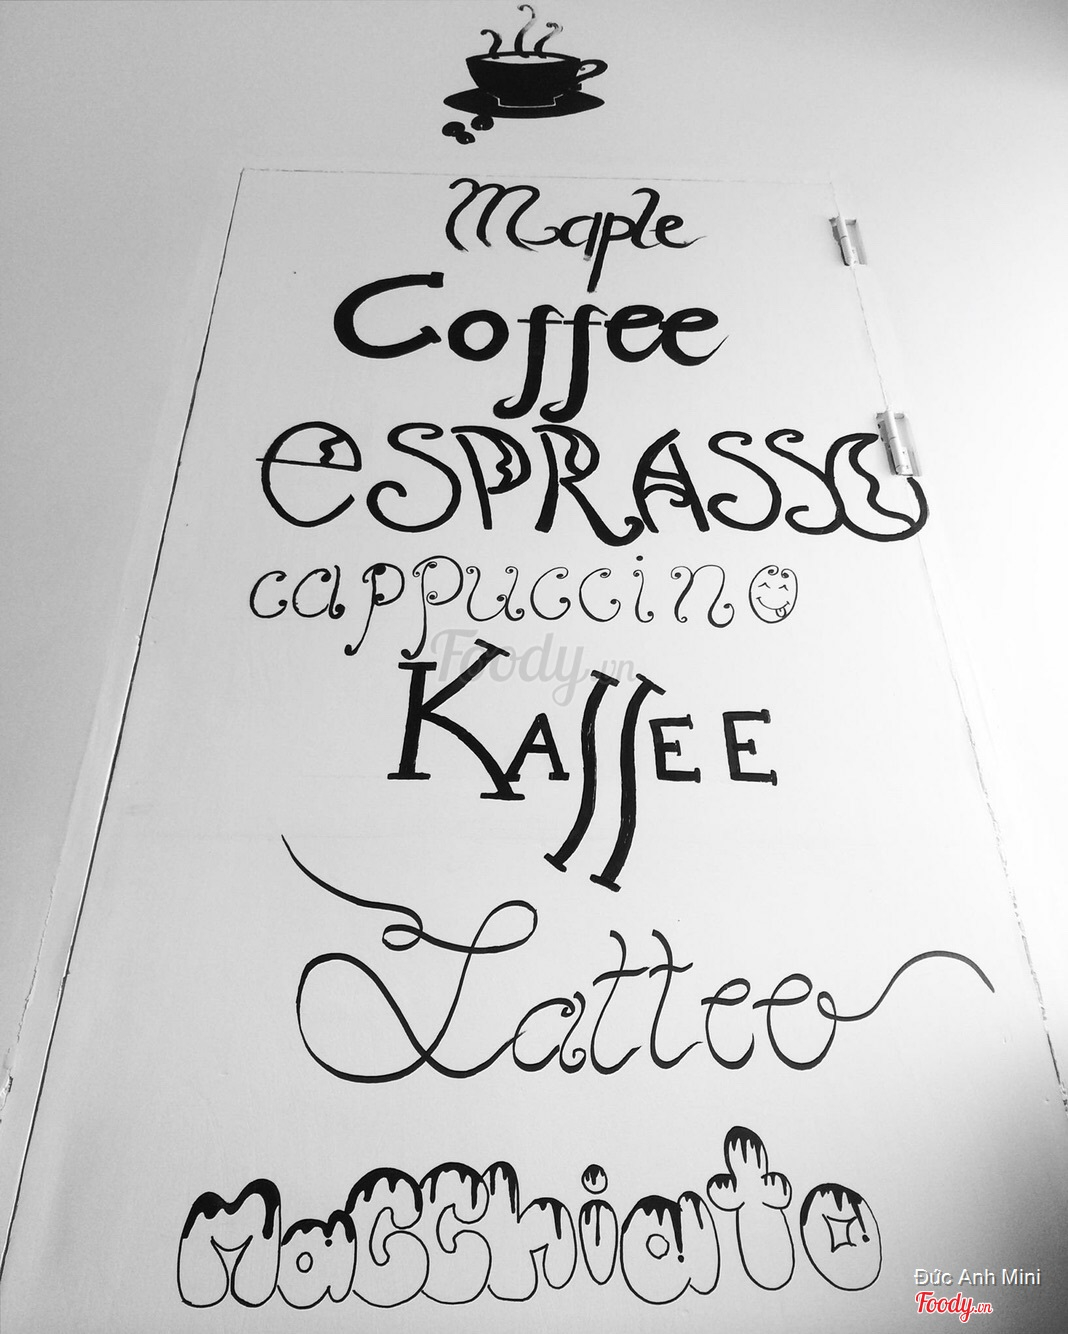 Maple
Coffee
eSPRASSO
cappuccino
Foody.vn
KAffEE
Latteeo
MaCChiato
Đức Anh Mini
Foody.vn